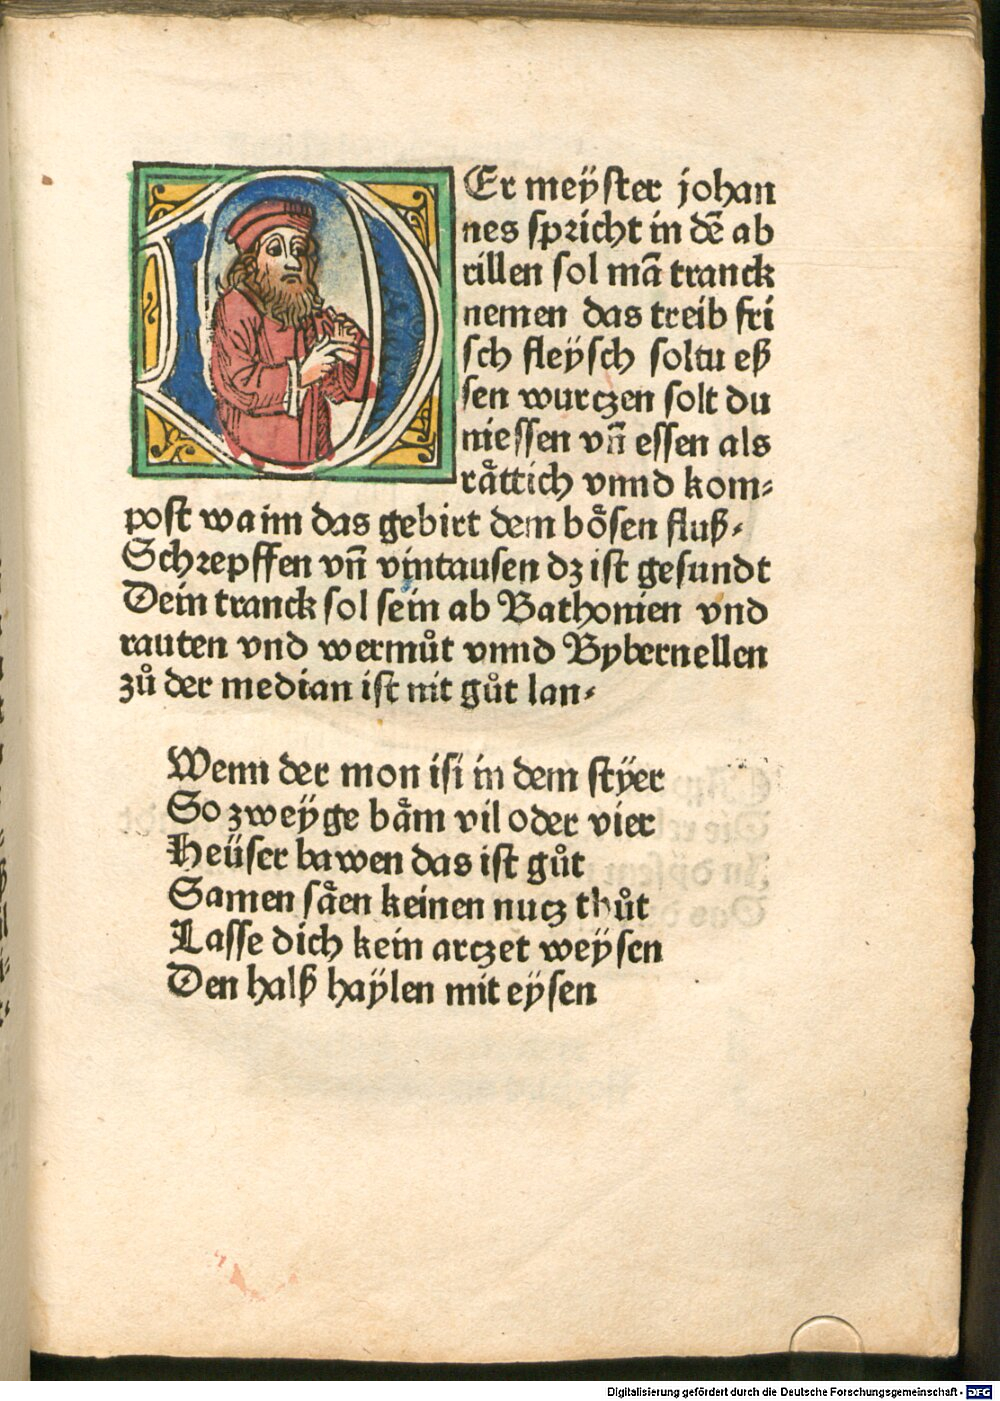 DEr meÿster johan
nes spricht in dē ab
rillen sol mā tranck
nemen das treib fri
sch fleÿsch soltu eß
sen wurczen solt du
niessen vñ essen als
råttich vnnd kom⸗
post wann das gebirt dem bösen fluß⸗
Schrepffen vñ vintausen dz ist gesundt
Dein tranck sol sein ab Bathonien vnd
rauten vnd wermůt vnnd Bybernellen
zů der median ist nit gůt lan⸗
Wenn der mon isi in dem stÿer
So zweÿge båm vil oder vier
Heüser bawen das ist gůt
Samen såen keinen nucz thůt
Lasse dich kein arczet weÿsen
Den halß haÿlen mit eÿsen
Digitalisierung gefördert durch die Deutsche Forschungsgemeinschaft - DFG